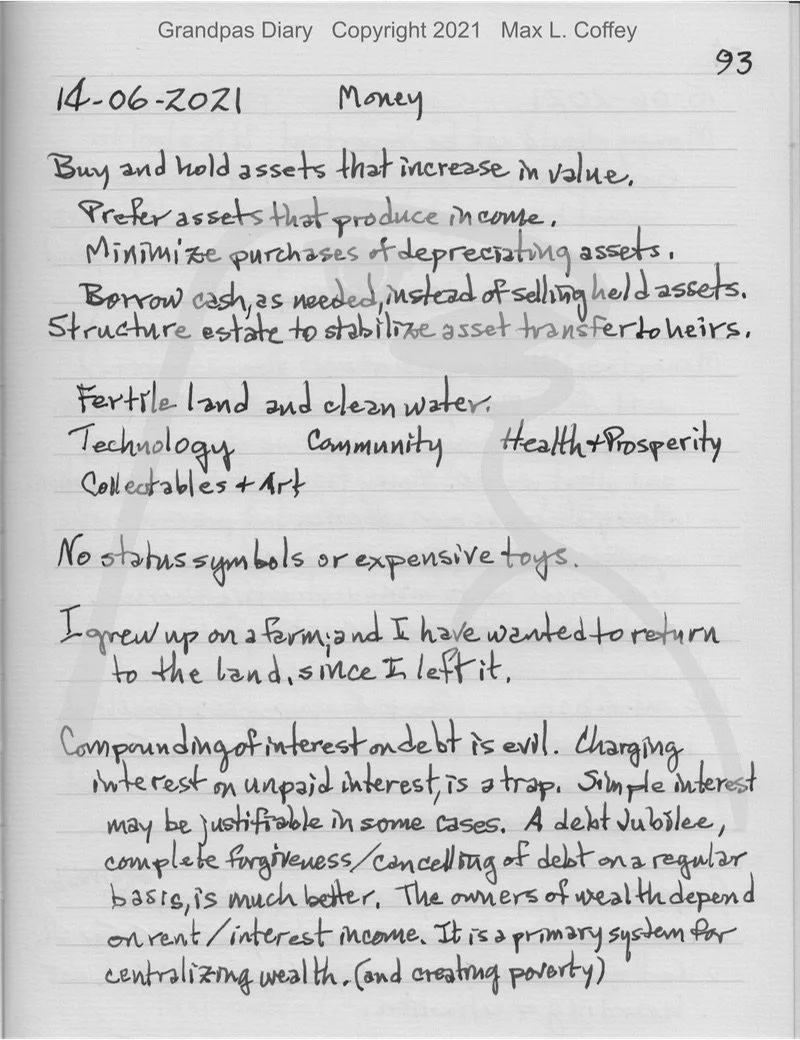 Grandpas Diary Copyright 2021 Max L. Coffey
93
14-06-2021 Money
Buy and hold assets that increase in value.
Prefer assets that produce income.
Minimize purchases of depreciating assets.
Borrow cash, as needed, instead of selling held assets.
Structure estate to stabilize asset transfer to heirs.
Fertile land and clean water.
Technology Community Health + Prosperity
Collectables + Art
No status symbols or expensive toys.
I grew up on a farm; and I have wanted to return
to the land, since I left it.
Compounding of interest on debt is evil. Charging
interest on unpaid interest, is a trap. Simple interest
may be justifiable in some cases. A debt Jubilee,
complete forgiveness/cancelling of debt on a regular
basis, is much better. The owners of wealth depend
on rent/interest income. It is a primary system for
centralizing wealth. (and creating poverty)